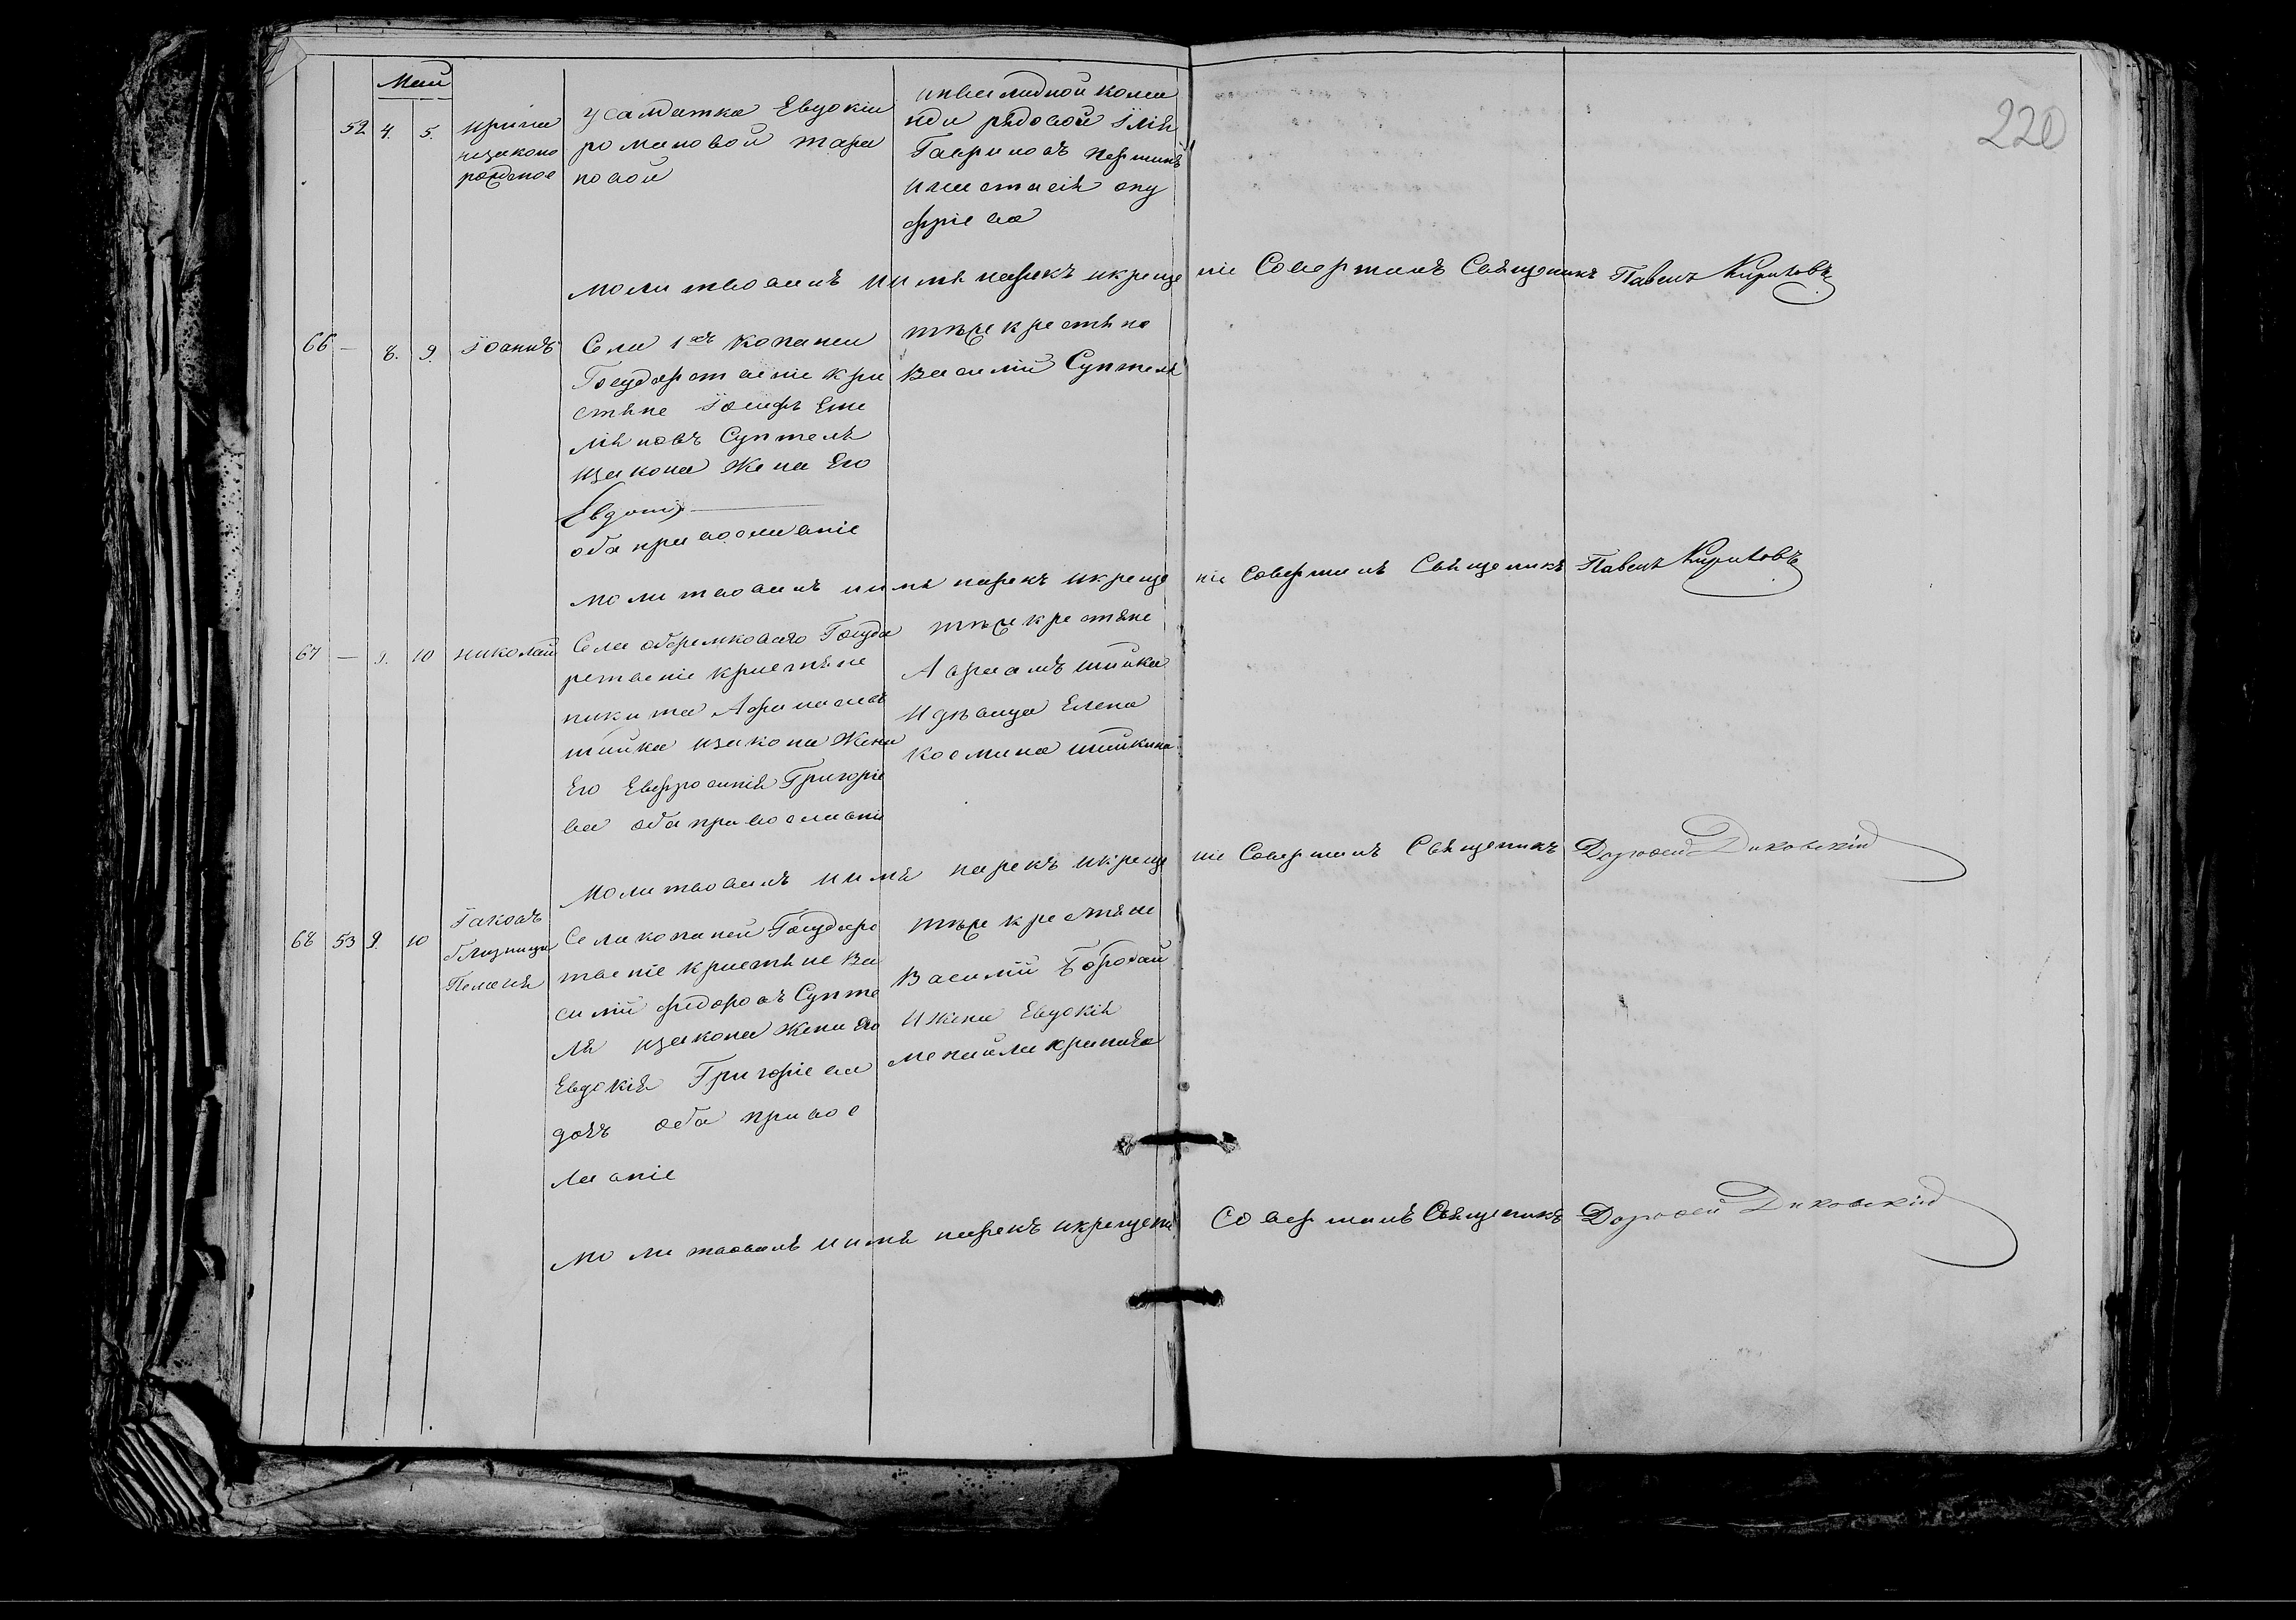 220
Май
52 4. 5. Ирина незаконо рожденое
у салдатки Евдокіи
романовой тара
новой
инвалидной кома
нди рядовой Iлія
Гавриловъ
и анастасія ону
фріева
молитвовалъ имя нарекъ и креще ніе Совершилъ Священикъ Павелъ Кириловъ
66 — 8. 9. Iоаннъ
Села 1хъ Копаней
Государственіе кри
стяне Iосифъ Еме
ляновъ Суптеля
изакона Жена Его
Евдотія
оба православніе
тъхже крестянъ
Василій Суптеля
молитвовалъ имя нарекъ и креще ніе Совершилъ Священикъ Павелъ Кириловъ
67 — 9. 10 николай
Села обремковаго Госуда
рственіе кристяне
никита
шийка изакона Жена
Его Евфросинія Григоріе
ва оба православніе
тъхже крестяне
Авраамъ шийка
И дъвица Елена
Космина шийкина
молитвовалъ имя нарекъ и креще ніе Совершилъ Священикъ Дорофей Диковскій
68 53 9. 10 Iаковъ близници Пелагія
Села копаней Государс
твеніе кристяне Ва
силій федоровъ Супте
ля изакона Жена Его
Евдокія Григоріева
дочъ оба правос
лавніе
тъхже крестяне
Василій Бородай
И жена Евдокія
молитвовалъ имя нарекъ и крещені Совершилъ Священикъ Дорофей Диковскій